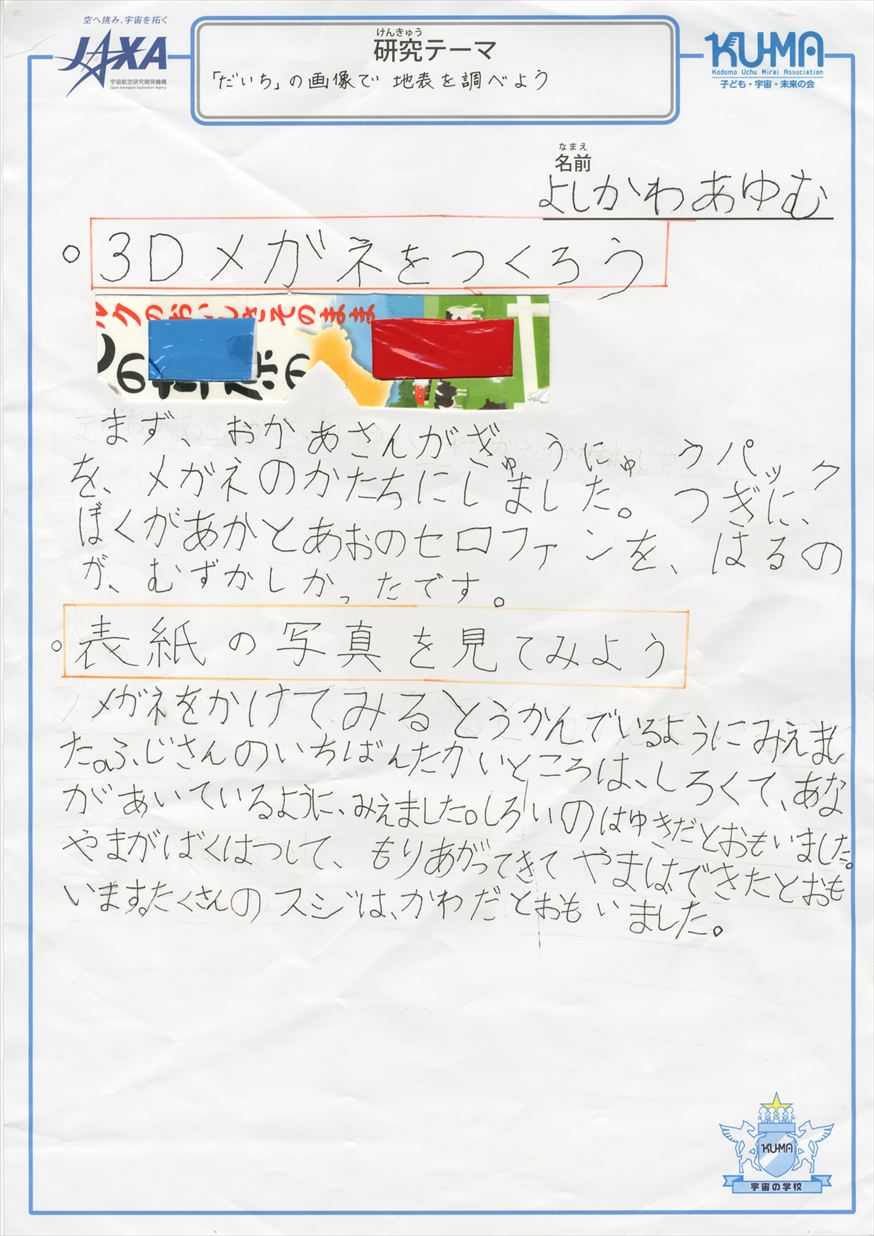 空へ挑み、宇宙を拓く
JAXA
宇宙航空研究開発機構
Japan Aerospace Exploration Agency
けんきゅう
研究テーマ
「だいち」の画像で 地表を調べよう
KU-MA
Kodomo Uchu Mirai Association
子ども・宇宙・未来の会
なまえ
名前
よしかわあゆむ
○ 3Dメガネをつくろう
ルクのおいしさそのまま
まず、おかあさんがぎゅうにゅうパック
を、メガネのかたちにしました。つぎに、
ぼくがあかとあおのセロファンを、はるの
が、むずかしかったです。
○ 表紙の写真を見てみよう
メガネをかけてみるとうかんでいるようにみえまし
た。ふじさんのいちばんたかいところは、しろくて、あな
があいているように、みえました。しろいのはゆきだとおもいました。
やまがばくはつして、もりあがってきてやまはできたとおも
います。たくさんのスジは、かわだとおもいました。
KU-MA
宇宙の学校